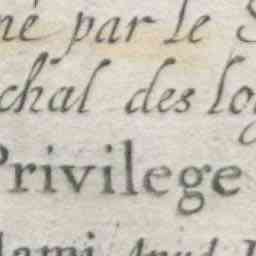 né par le S
chal des log
Privilege